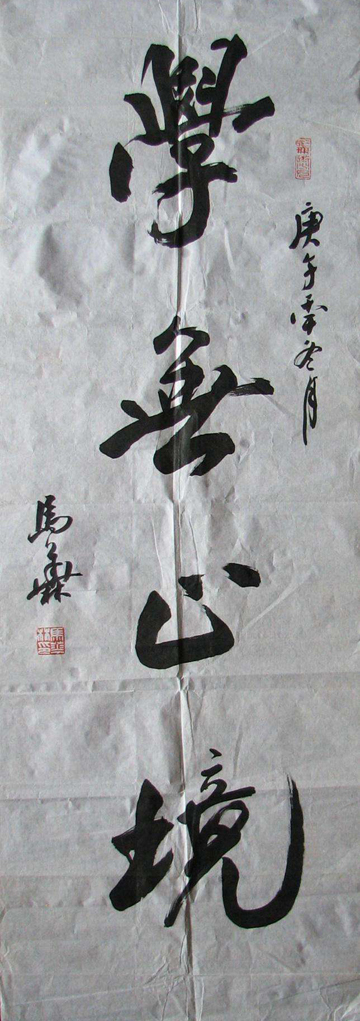 學無止境
庚午
冬月
馬